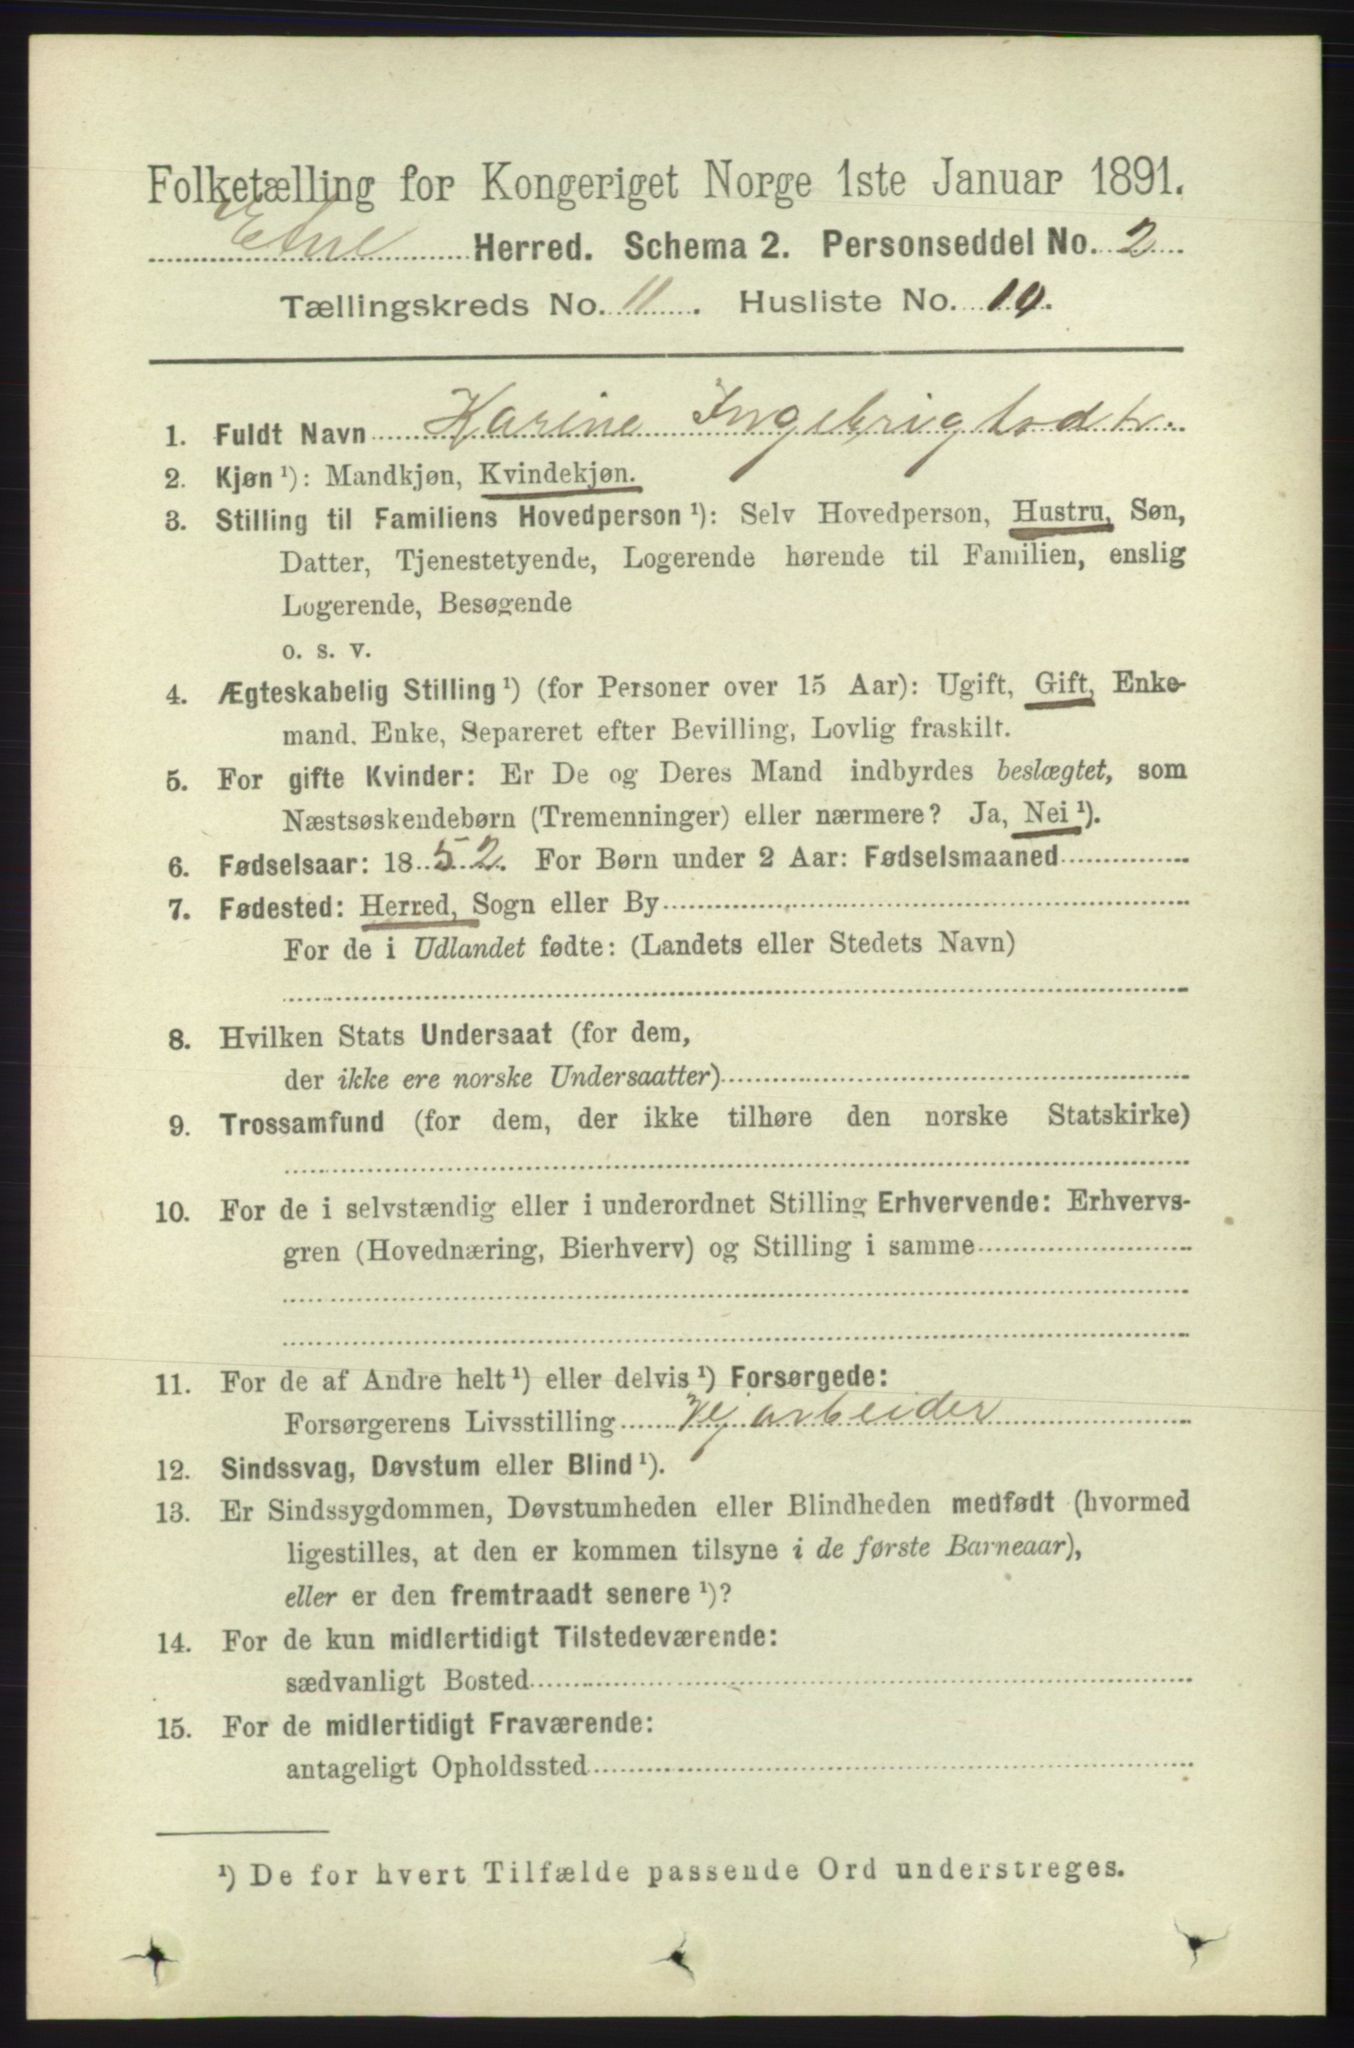 Folketælling for Kongeriget Norge 1ste Januar 1891.
Etne Herred. Schema 2. Personseddel No. 2
Tællingskreds No. 11. Husliste No. 10.
1. Fuldt Navn Karine Ingebrigtsdtr.
2. Kjøn ¹): Mandkjøn, Kvindekjøn.
3. Stilling til Familiens Hovedperson ¹): Selv Hovedperson, Hustru, Søn,
Datter, Tjenestetyende, Logerende hørende til Familien, enslig
Logerende, Besøgende
o. s. v.
4. Ægteskabelig Stilling ¹) (for Personer over 15 Aar): Ugift, Gift, Enke-
mand. Enke, Separeret efter Bevilling, Lovlig fraskilt.
5. For gifte Kvinder: Er De og Deres Mand indbyrdes beslægtet, som
Næstsøskendebørn (Tremenninger) eller nærmere? Ja, Nei ¹).
6. Fødselsaar: 1852. For Børn under 2 Aar: Fødselsmaaned
7. Fødested: Herred, Sogn eller By
For de i Udlandet fødte: (Landets eller Stedets Navn)
8. Hvilken Stats Undersaat (for dem,
der ikke ere norske Undersaatter)
9. Trossamfund (for dem, der ikke tilhøre den norske Statskirke)
10. For de i selvstændig eller i underordnet Stilling Erhvervende: Erhvervs-
gren (Hovednæring, Bierhverv) og Stilling i samme
11. For de af Andre helt ¹) eller delvis ¹) Forsørgede:
Forsørgerens Livsstilling Vejarbeider
12. Sindssvag, Døvstum eller Blind ¹).
13. Er Sindssygdommen, Døvstumheden eller Blindheden medfødt (hvormed
ligestilles, at den er kommen tilsyne i de første Barneaar),
eller er den fremtraadt senere ¹)?
14. For de kun midlertidigt Tilstedeværende:
sædvanligt Bosted
15. For de midlertidigt Fraværende:
antageligt Opholdssted
¹) De for hvert Tilfælde passende Ord understreges.